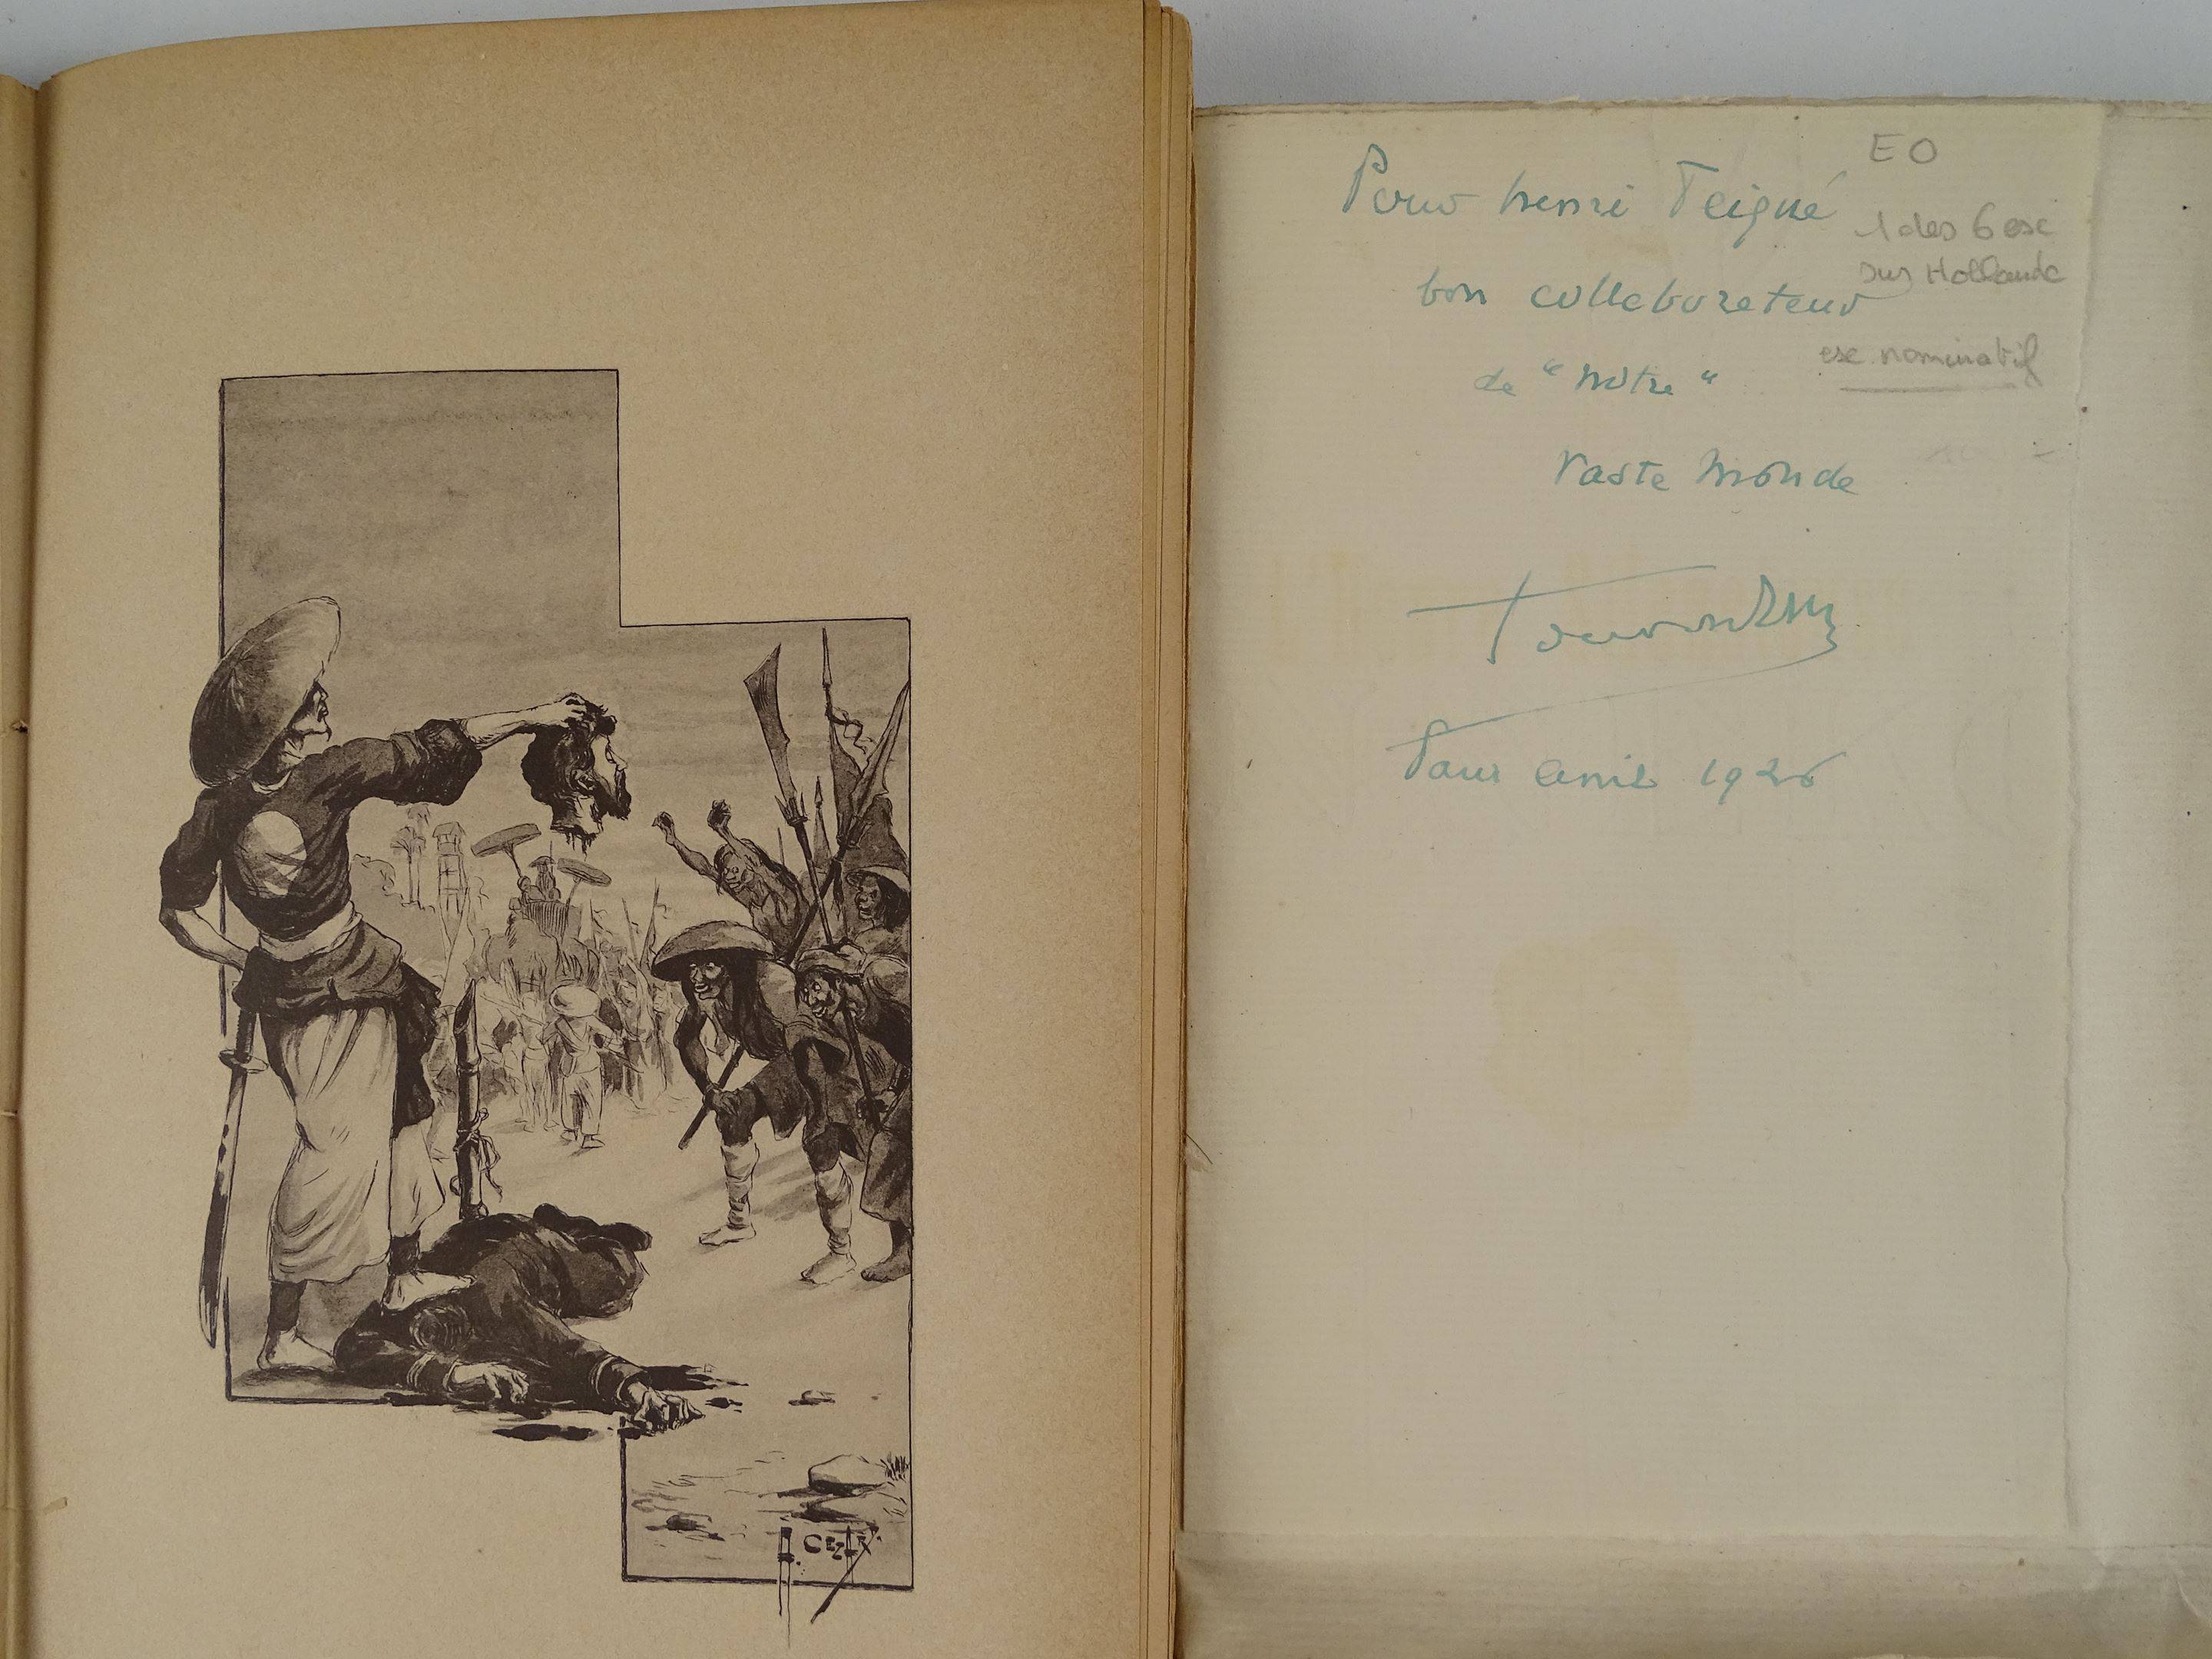 Pour henri Teigné
bon collaborateur
de "notre"
Vaste Monde
Paris avril 1926
EO
1 des 6 ex
sur Hollande
ex nominatif